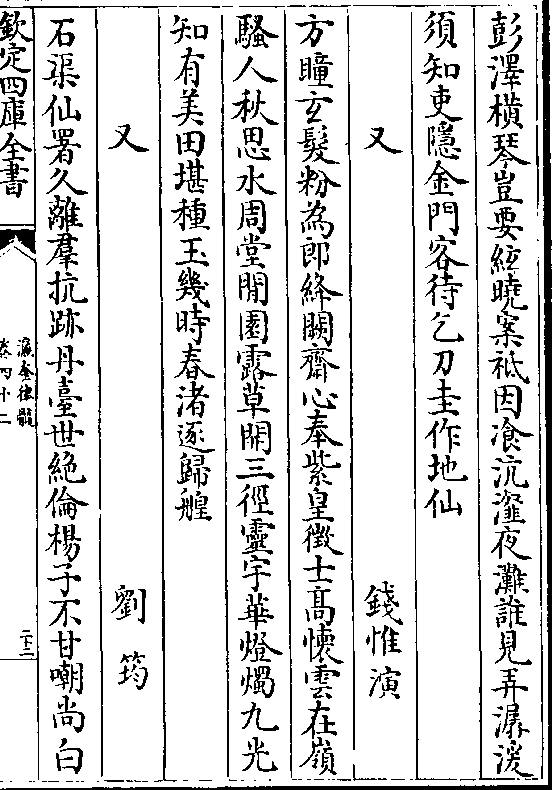 彭澤橫琴豈要絃曉案祗因飡沆瀣夜灘誰見弄潺湲
須知吏隱金門客待乞刀圭作地仙
又 錢惟演
方瞳玄髮粉為郎絳闕齋心奉紫皇徴士髙懷雲在嶺
騷人秋思水周堂閒園露草開三徑靈宇華燈燭九光
知有美田堪種玉幾時春渚逐歸艎
又 劉筠
石渠仙署久離羣抗跡丹臺世絶倫楊子不甘嘲尚白
欽定四庫全書
瀛奎律髓
卷四十二
二十二